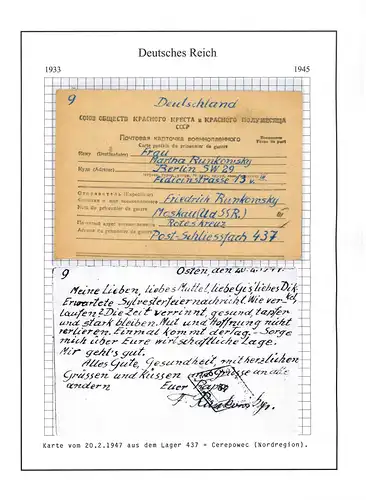 Deutsches Reich
1933 1945
9
Deutschland
СОЮЗ ОБЩЕСТВ КРАСНОГО КРЕСТА и КРАСНОГО ПОЛУМЕСЯЦА
СССР
Почтовая карточка военнопленного
Carte postale du prisonnier de guerre
Frau
Кому (Destinataire) Martha Runkowsky
Куда (Adresse) Berlin SW 29
Fidicinstrasse 13
Отправитель (Expéditeur)
Фамилия и имя военнопленного Friedrich Runkowsky
Nom du prisonnier de guerre
Moskau (UdSSR)
Почтовый адрес военнопленного Rotes Kreuz
Adresse du prisonnier de guerre Post-Schliessfach 437
9 Osten, den
Meine Lieben, liebes Muttel, liebe Gis, liebes
Erwartete Sylvesterfeiernachricht. Wie ver-
laufen? Die Zeit verrinnt, gesund, tapfer
und stark bleiben. Mut und Hoffnung nicht
verlieren. Einmal kommt der Tag. - Sorge
mich über Eure wirtschaftliche Lage.
Mir geht's gut.
Alles Gute, Gesundheit, mit herzlichen
Grüssen und Küssen an alle
andern Euer Papa
Karte vom 20.2.1947 aus dem Lager 437 = Cerepowec (Nordregion).